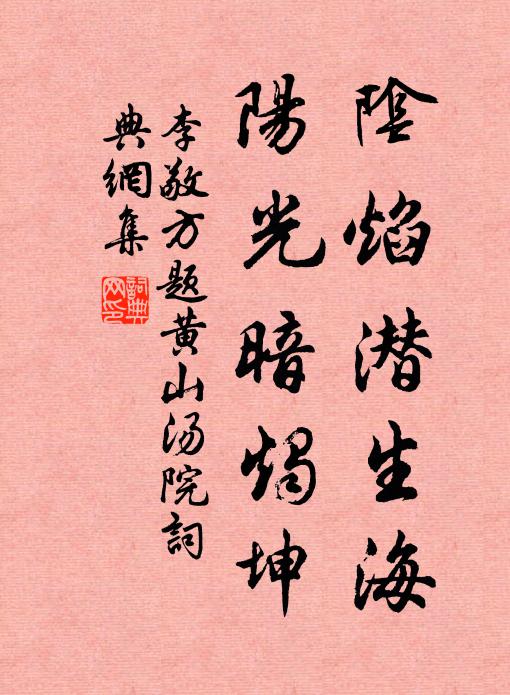 陰焰潜生海
陽光暗燭坤
李敬方題黄山汤院詞
典網集
詞典网印